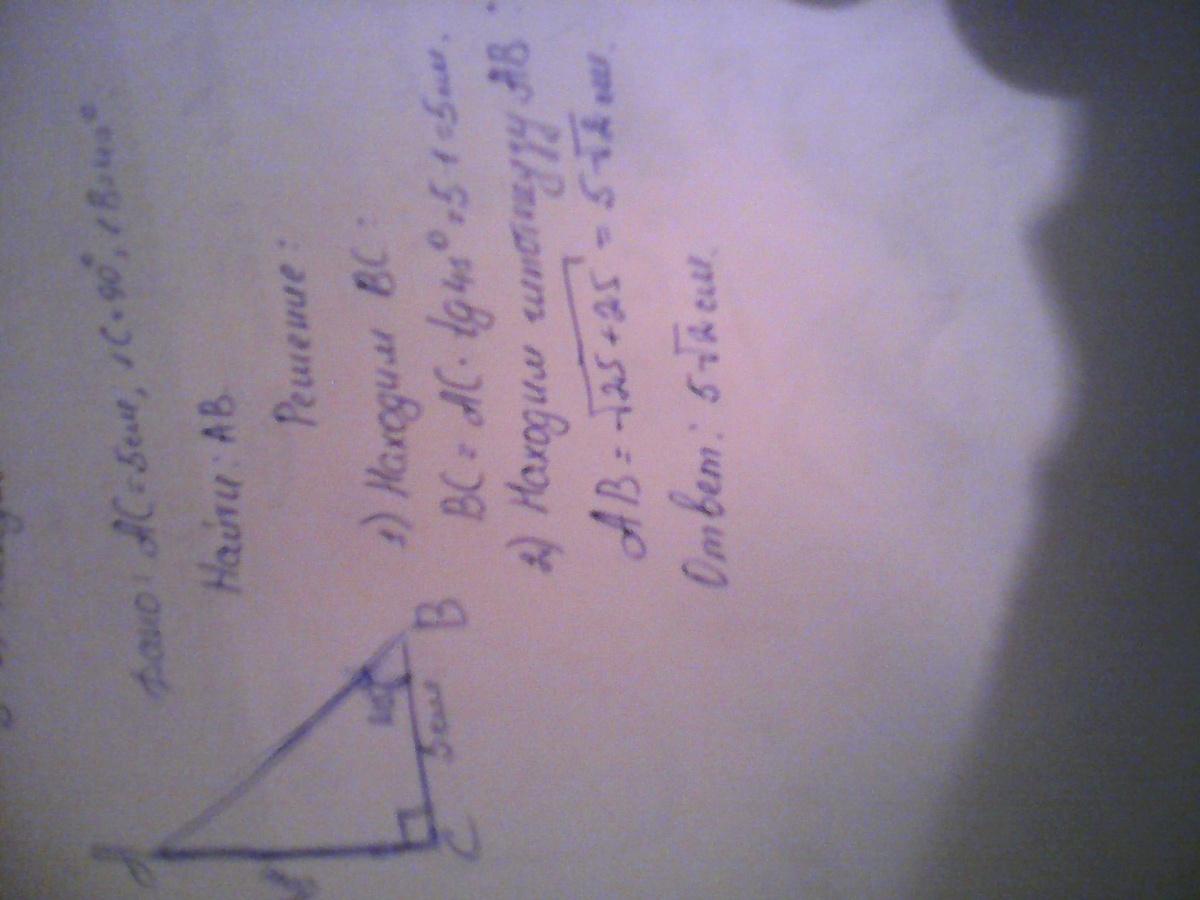 Дано: AC = 5см, ∠C = 90°, ∠B = 45°
Найти: AB
Решение:
1) Находим BC:
BC = AC · tg 45° = 5 · 1 = 5см.
2) Находим гипотенузу AB.
AB = √25+25 = 5√2 см.
Ответ: 5√2 см.
A
B
C
5см